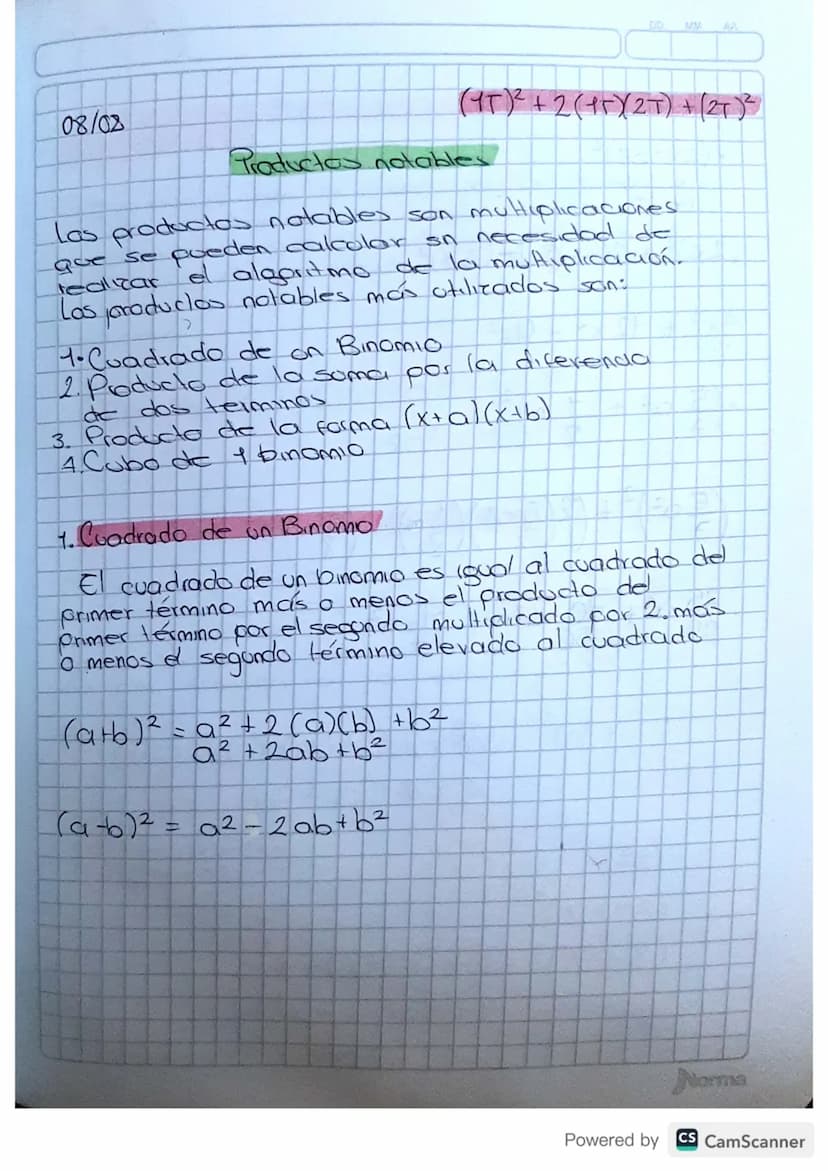 DD MM AA
(1T)² + 2(1T)(2T) + (2T)²
08/03
Productos notables
Los productos notables son multiplicaciones
que se pueden calcular sn necesidad de
realizar el algoritmo de la multiplicación.
Los productos notables más utilizados son:
1. Cuadrado de un Binomio
2. Producto de la soma por la diferencia
de dos terminos
3. Producto de la forma (x+a)(x+b)
4. Cubo de 1 binomio
1. Cuadrado de un Binomo
El cuadrado de un binomio es igual al cuadrado del
primer término más o menos el producto del
primer término por el segundo multiplicado por 2. más
o menos el segundo término elevado al cuadrado
(a+b)² = a² + 2 (a)(b) + b²
a² + 2ab + b²
(a-b)² = a² - 2ab + b²
Norma
Powered by CS CamScanner